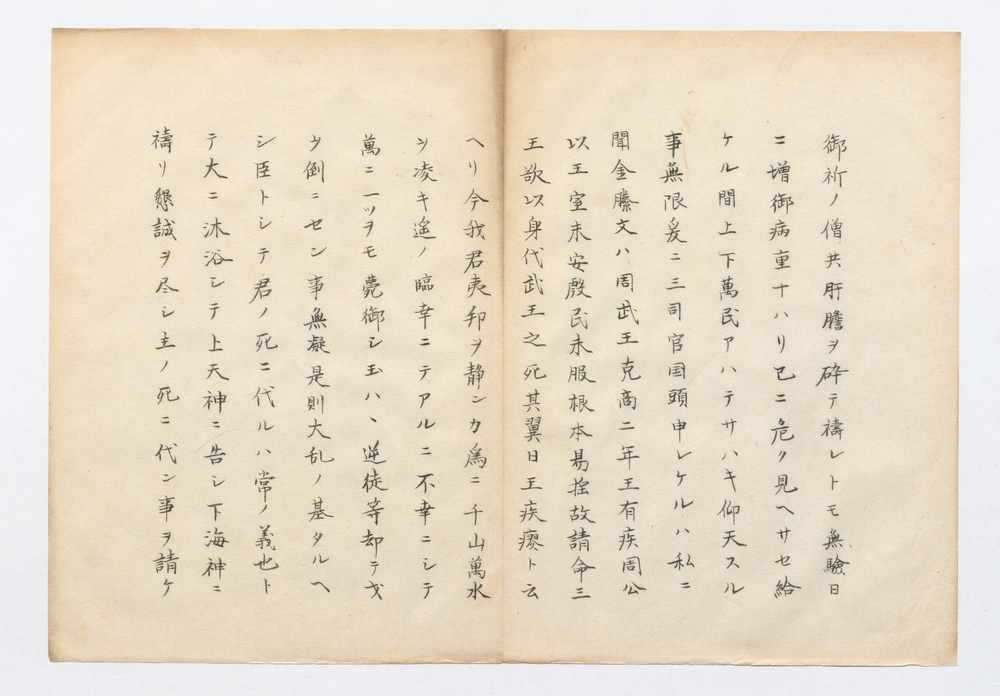 御祈ノ僧共肝膽ヲ砕テ禱レトモ無驗日
ニ増御病重十ハリ已ニ危ク見ヘサセ給
ケル間上下萬民アハテサハキ仰天スル
事無限爰ニ三司官国頭申レケルハ私ニ
聞金縢文ハ周武王克商二年王有疾周公
以王室未安殷民未服根本易揺故請命三
王欲以身代武王之死其翼日王疾瘳ト云
ヘリ今我君夷邦ヲ静ンカ為ニ千山萬水
ヲ凌キ遙ノ臨幸ニテアルニ不幸ニシテ
萬ニ一ツヲモ薨御シ玉ハヽ逆徒等却テ戈
ヲ倒ニセン事無凝是則大乱ノ基タルヘ
シ臣トシテ君ノ死ニ代ルハ常ノ義也ト
テ大ニ沐浴シテ上天神ニ告シ下海神ニ
禱リ懇誠ヲ尽シ主ノ死ニ代ン事ヲ請ケ